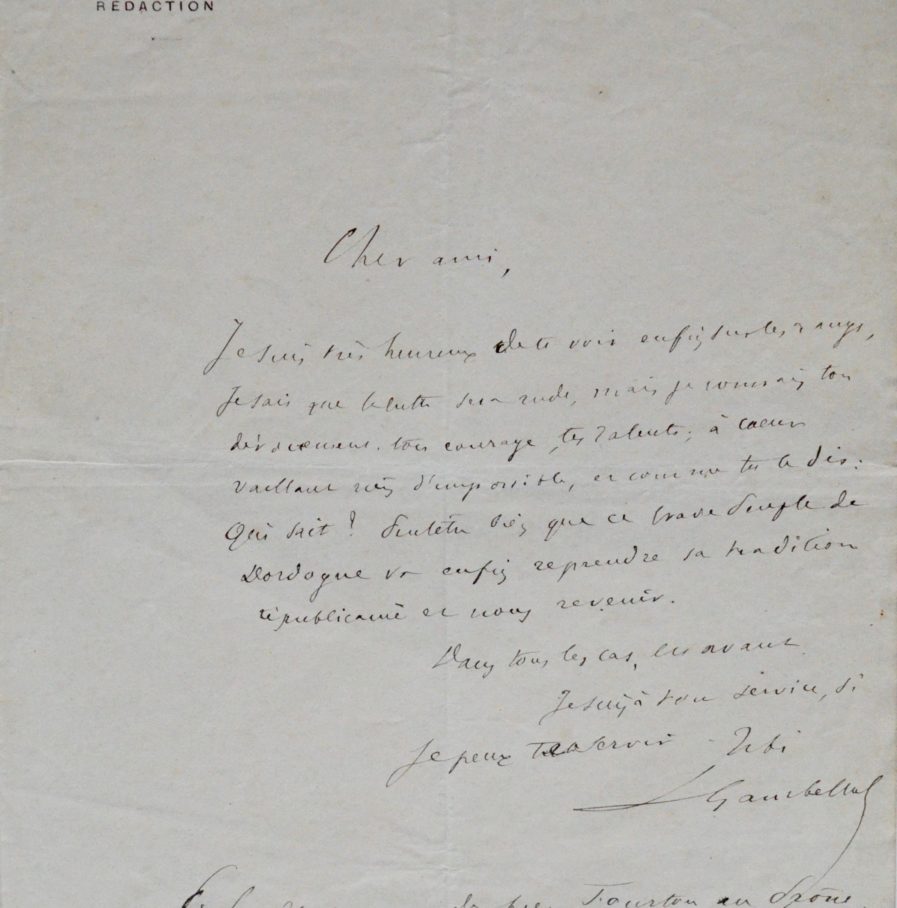 RÉDACTION
Cher ami,
Je suis très heureux de te voir enfin sur les rangs,
Je sais que la lutte sera rude, mais je connais ton
dévouement, ton courage, tes talents; à coeur
vaillant rien d'impossible, et comme tu le dis:
Qui sait! Peut-être bien que ce brave peuple de
Dordogne va enfin reprendre sa tradition
républicaine et nous revenir.
Dans tous les cas, en avant.
Je suis à ton service, si
Je peux te servir - Tibi
L Gambetta
Fourton au